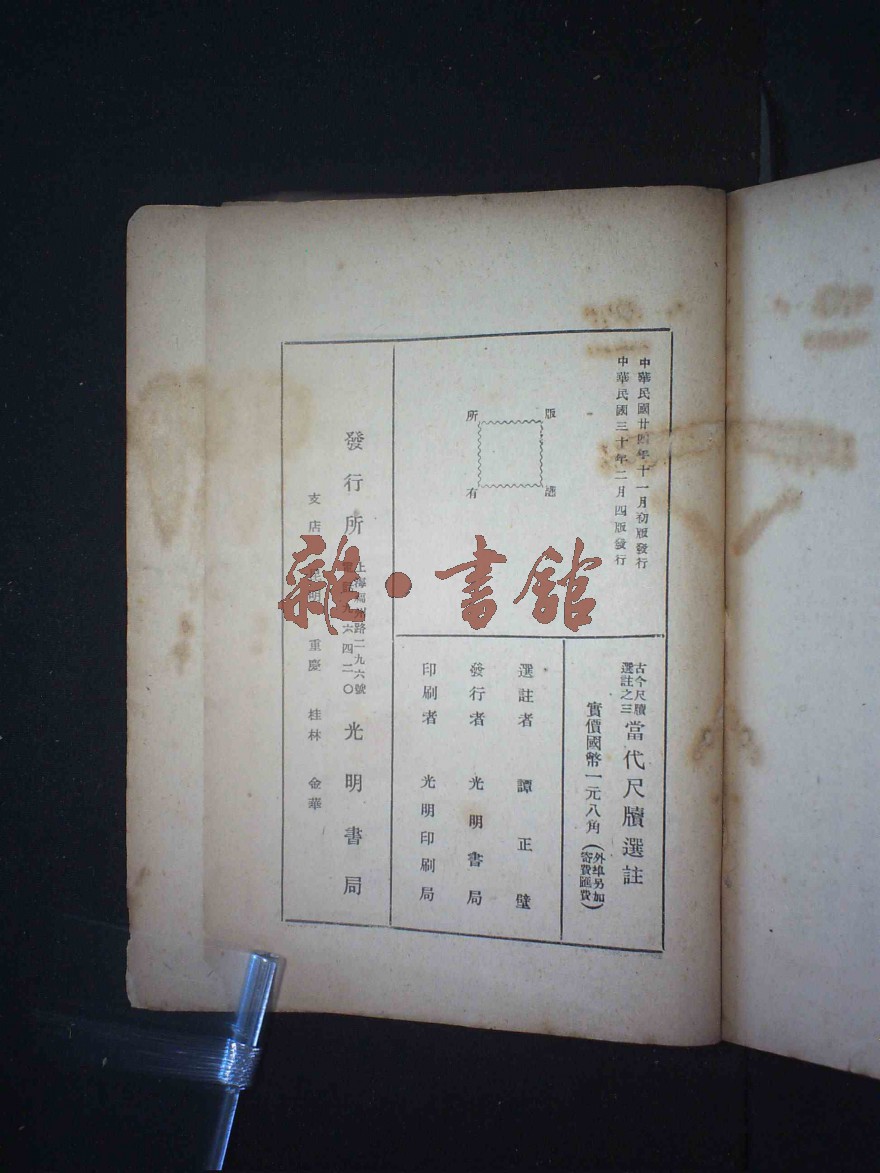 中華民國廿四年十一月初版發行
中華民國三十年二月四版發行
版權所有
古今尺牘
選註之三
當代尺牘選註
實價國幣一元八角
(外埠另加
寄費匯費)
選註者 譚正璧
發行者 光明書局
印刷者 光明印刷局
發行所
路二九六號
六四二〇
光明書局
支店 明 重慶 桂林 金華
雜·書館